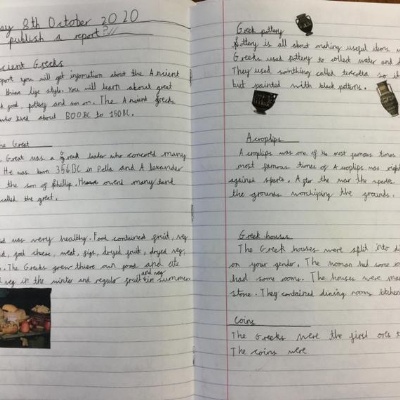 ay 8th October 2020
publish a report?!!
ncient Greeks
eport you will get information about the Ancient
their life style. You will learn about great
food, pottery and so on. The Ancient Greek
800BC to 140BC.
the Great
Great was a great leader who concored many
He was born 356BC in Pella and Alexander
the son of Phillip. owned many land
called the great.
was verry healthy. Food contained fruit, veg
, goat cheese, meat, figs, dryed fruit, dryed veg,
. The Greeks grew there own food and ate
veg in the winter and regular fruit and veg in summer
Greek pottery
Pottery is all about making useful items
Greeks used pottery to collect water and
They used something called so it
but painted with black patterns.
Acroplips
Acroplips was one of the most famous
most famous times of Acroplips was
against sparta. After the war the
the grounds worshiping the grounds.
Greek houses
The Greek houses were split into
on your gender. The woman had some
had some rooms. The houses were
stone. They contained dining room, kitchen
Coins
The Greeks were the first ones
The coins were